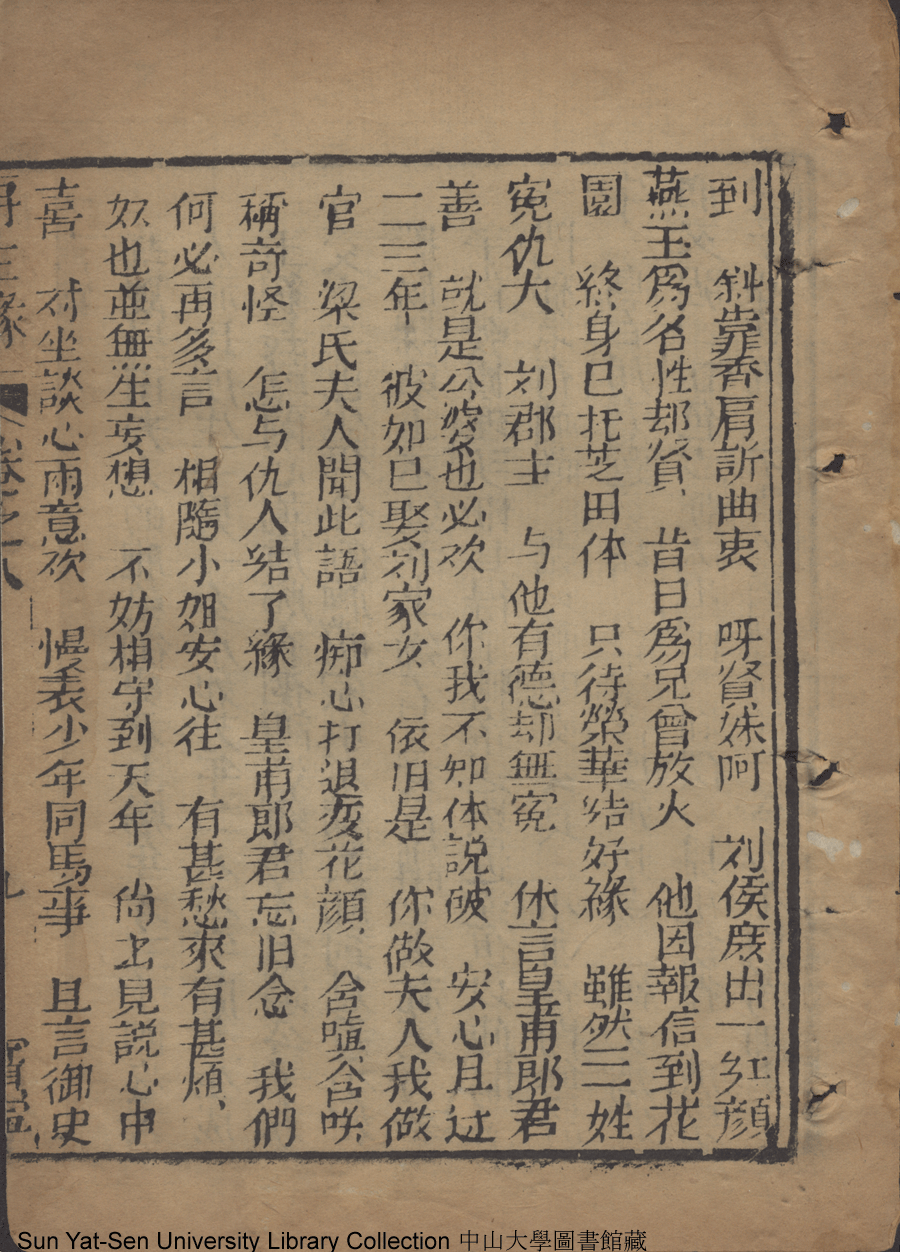 到 斜靠香肩訢曲衷 呀賢妹呵 刘侯庶出一红顔
燕玉爲名性却賢 昔日爲兄曾放火 他因報信到花
園 終身已托芝田体 只待榮華结好緣 雖然二姓
寃仇大 刘郡主 与他有德却無寃 休言皇甫郎君
善 就是公婆也必欢 你我不知体説破 安心且过
二三年 彼如已娶刘家女 依旧是 你做夫人我做
官 梁氏夫人聞此語 痴心打退变花顔 含嗔含咲
稱奇怪 怎与仇人结了緣 皇甫郎君忘旧念 我們
何必再多言 相隨小姐安心往 有甚愁來有甚煩
奴也並無生妄想 不妨相守到天年 尚书見説心中
喜 対坐談心兩意欢 慢表少年同馬事 且言御史
再生緣 卷之八 九 寳寧
Sun Yat-Sen University Library Collection 中山大學圖書館藏